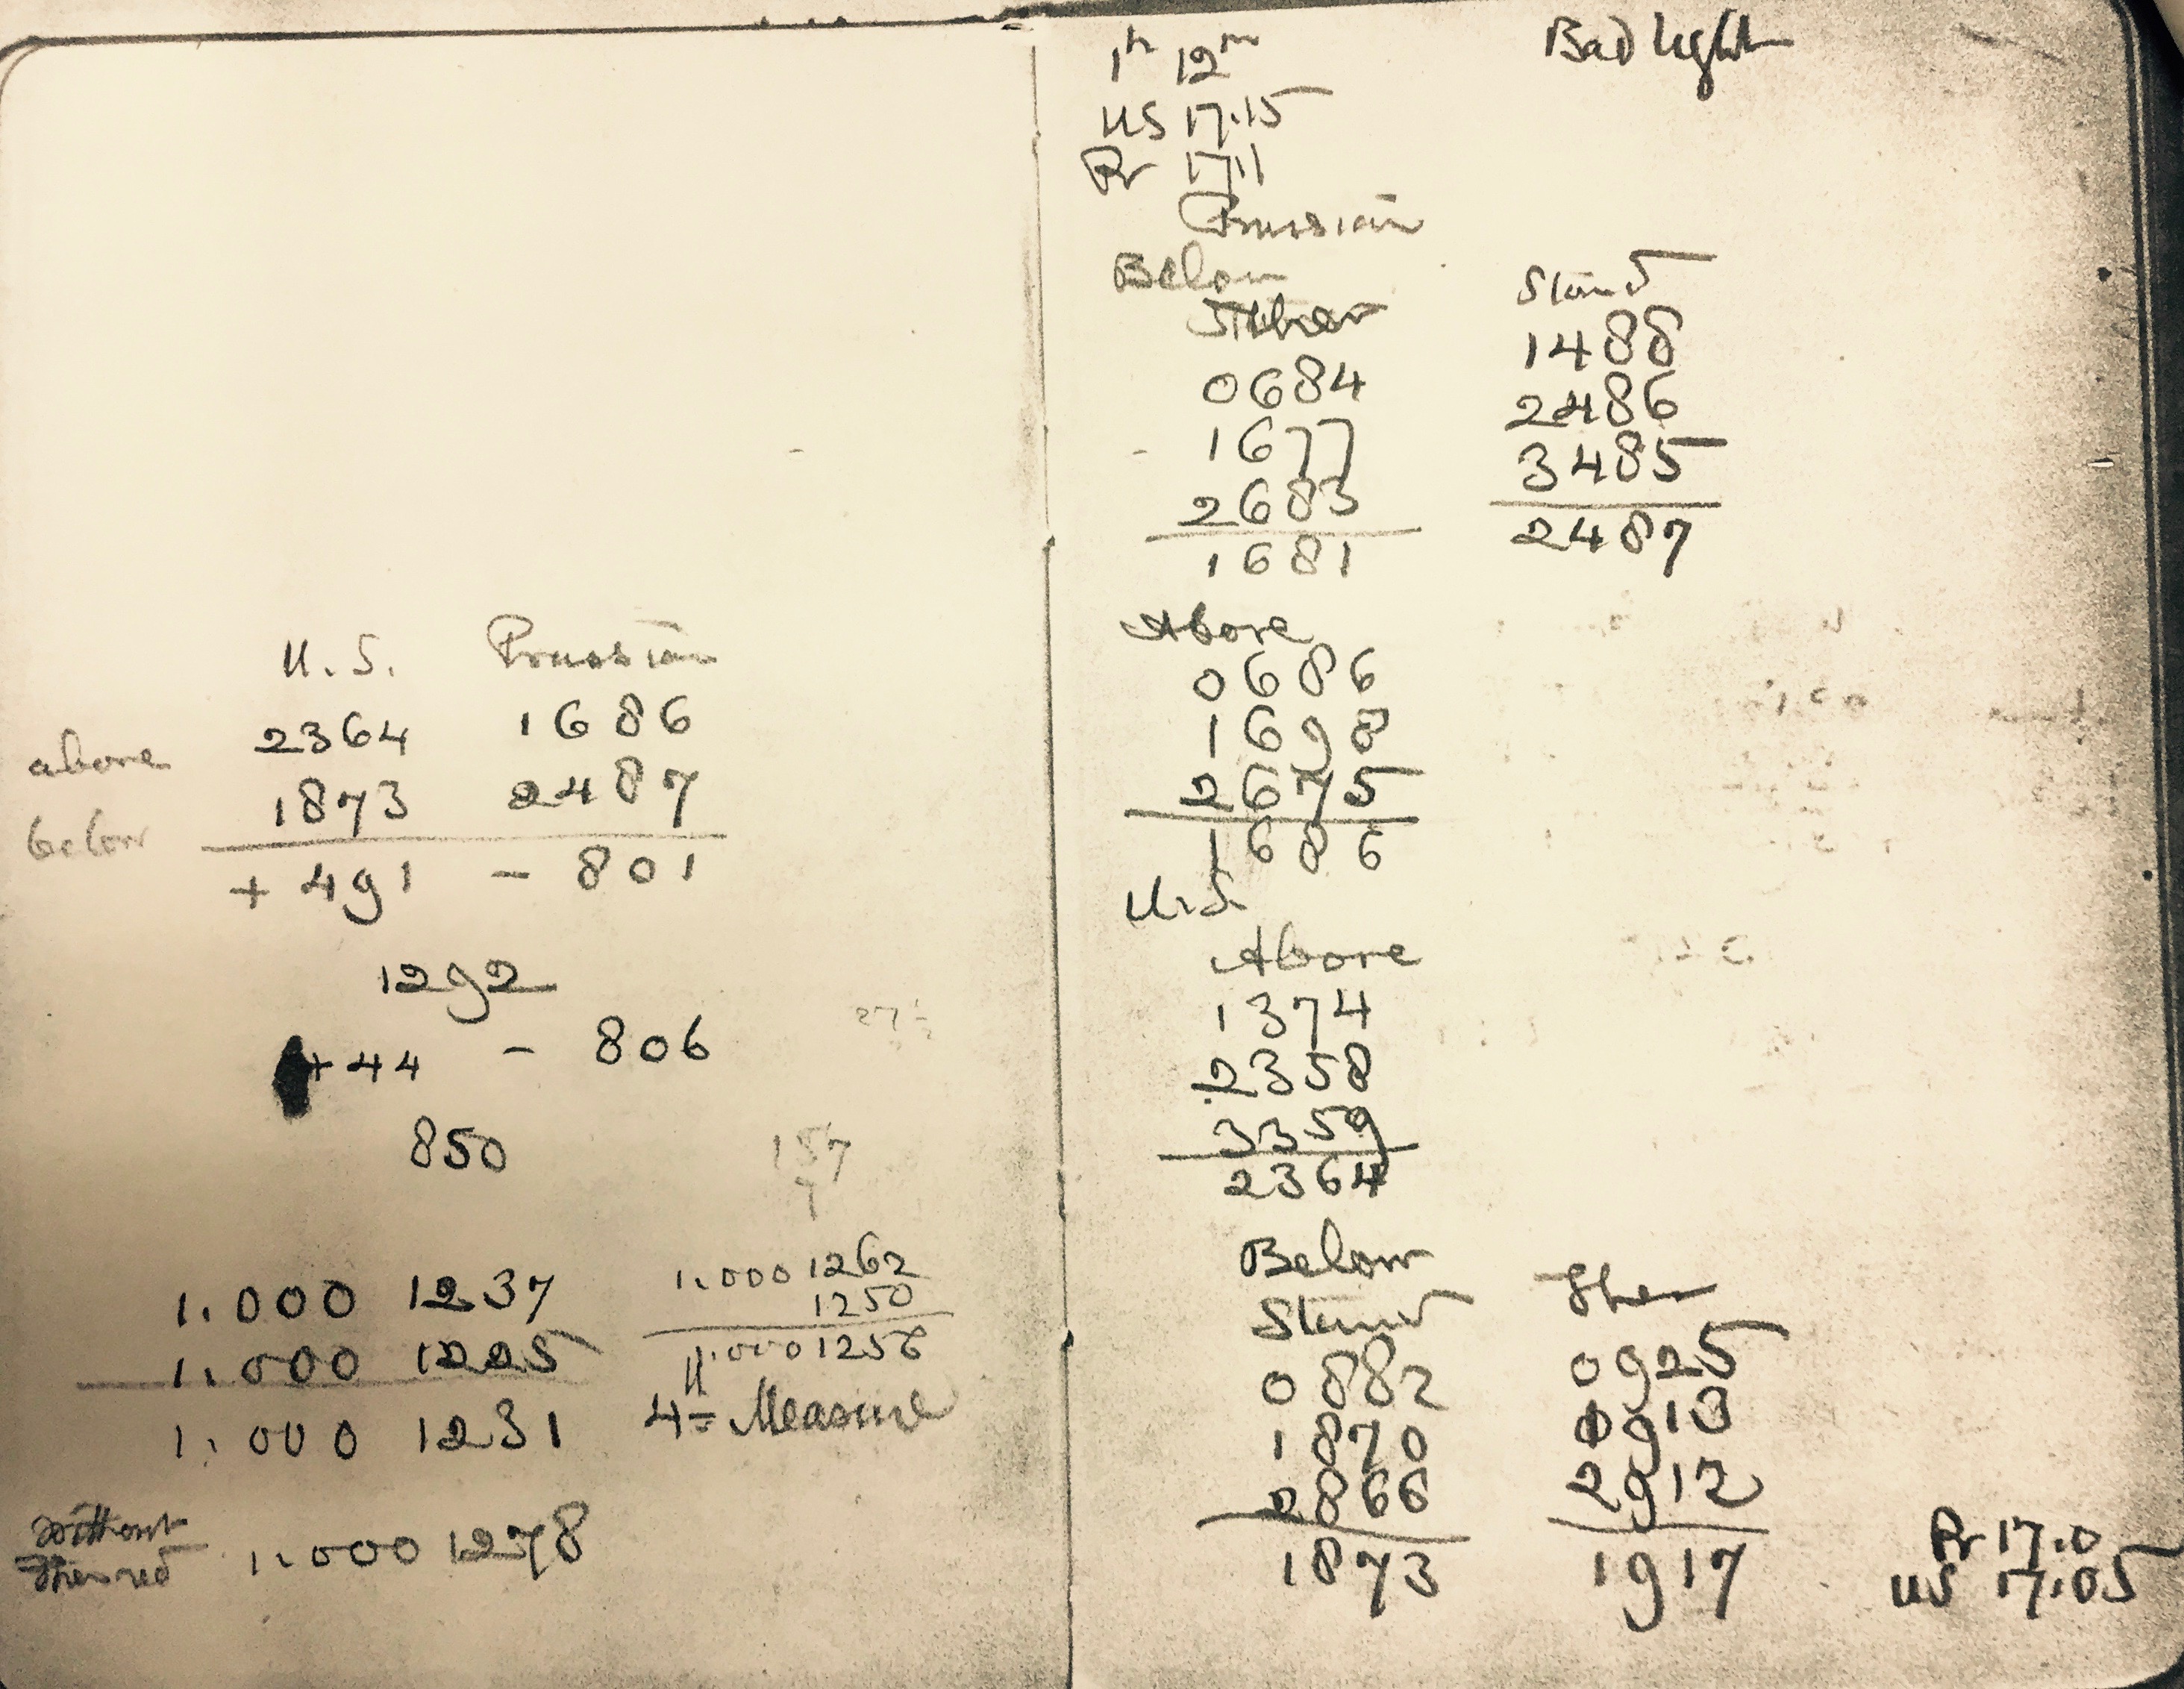 U.S. Prussian
above 2364 1686
below 1873 2487
+ 491 - 801
1292
+44 - 806
27
850
157
7
1.000 1237
1.000 1225
1.000 1231
1.000 1262
1250
1.000 1256
4= Measure
without
1.000 1278
1h 12m Bad light
US 17.15
Pr 17.11
Prussian
Below
Other Stand
0684 1488
1677 2486
2683 3485
1681 2487
Above
0686
1698
2675
1686
U.S.
Above
1374
2358
3359
2364
Below
Stand Ther
0882 0925
1870 0913
2866 2912
1873 1917
Pr 17.0
US 17.05